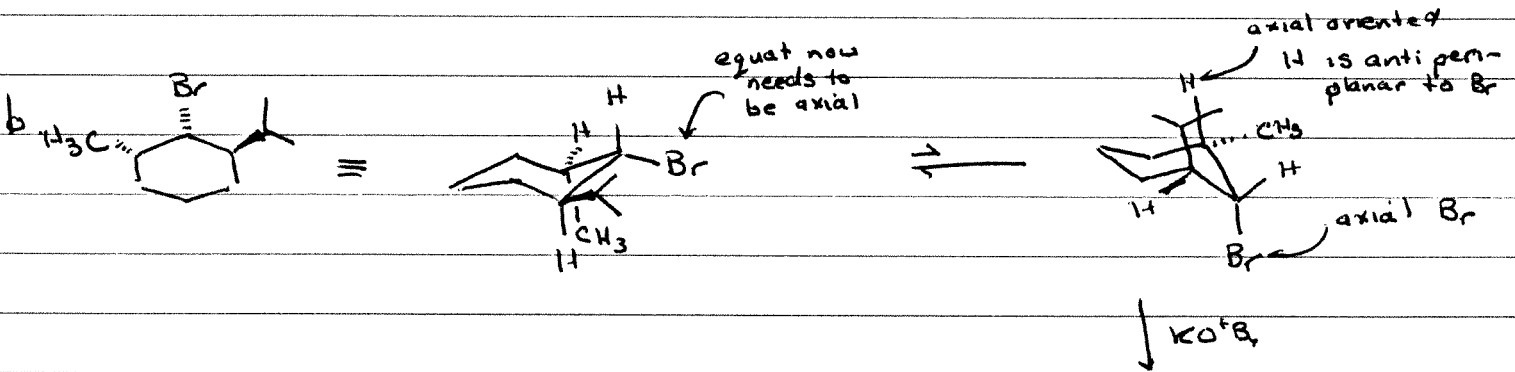 b
Br
H3C
equat now
needs to
be axial
H
H
Br
CH3
H
≡
⇌
axial oriented
H is anti peri-
planar to Br
H
CH3
H
H
Br
axial Br
KOtBu